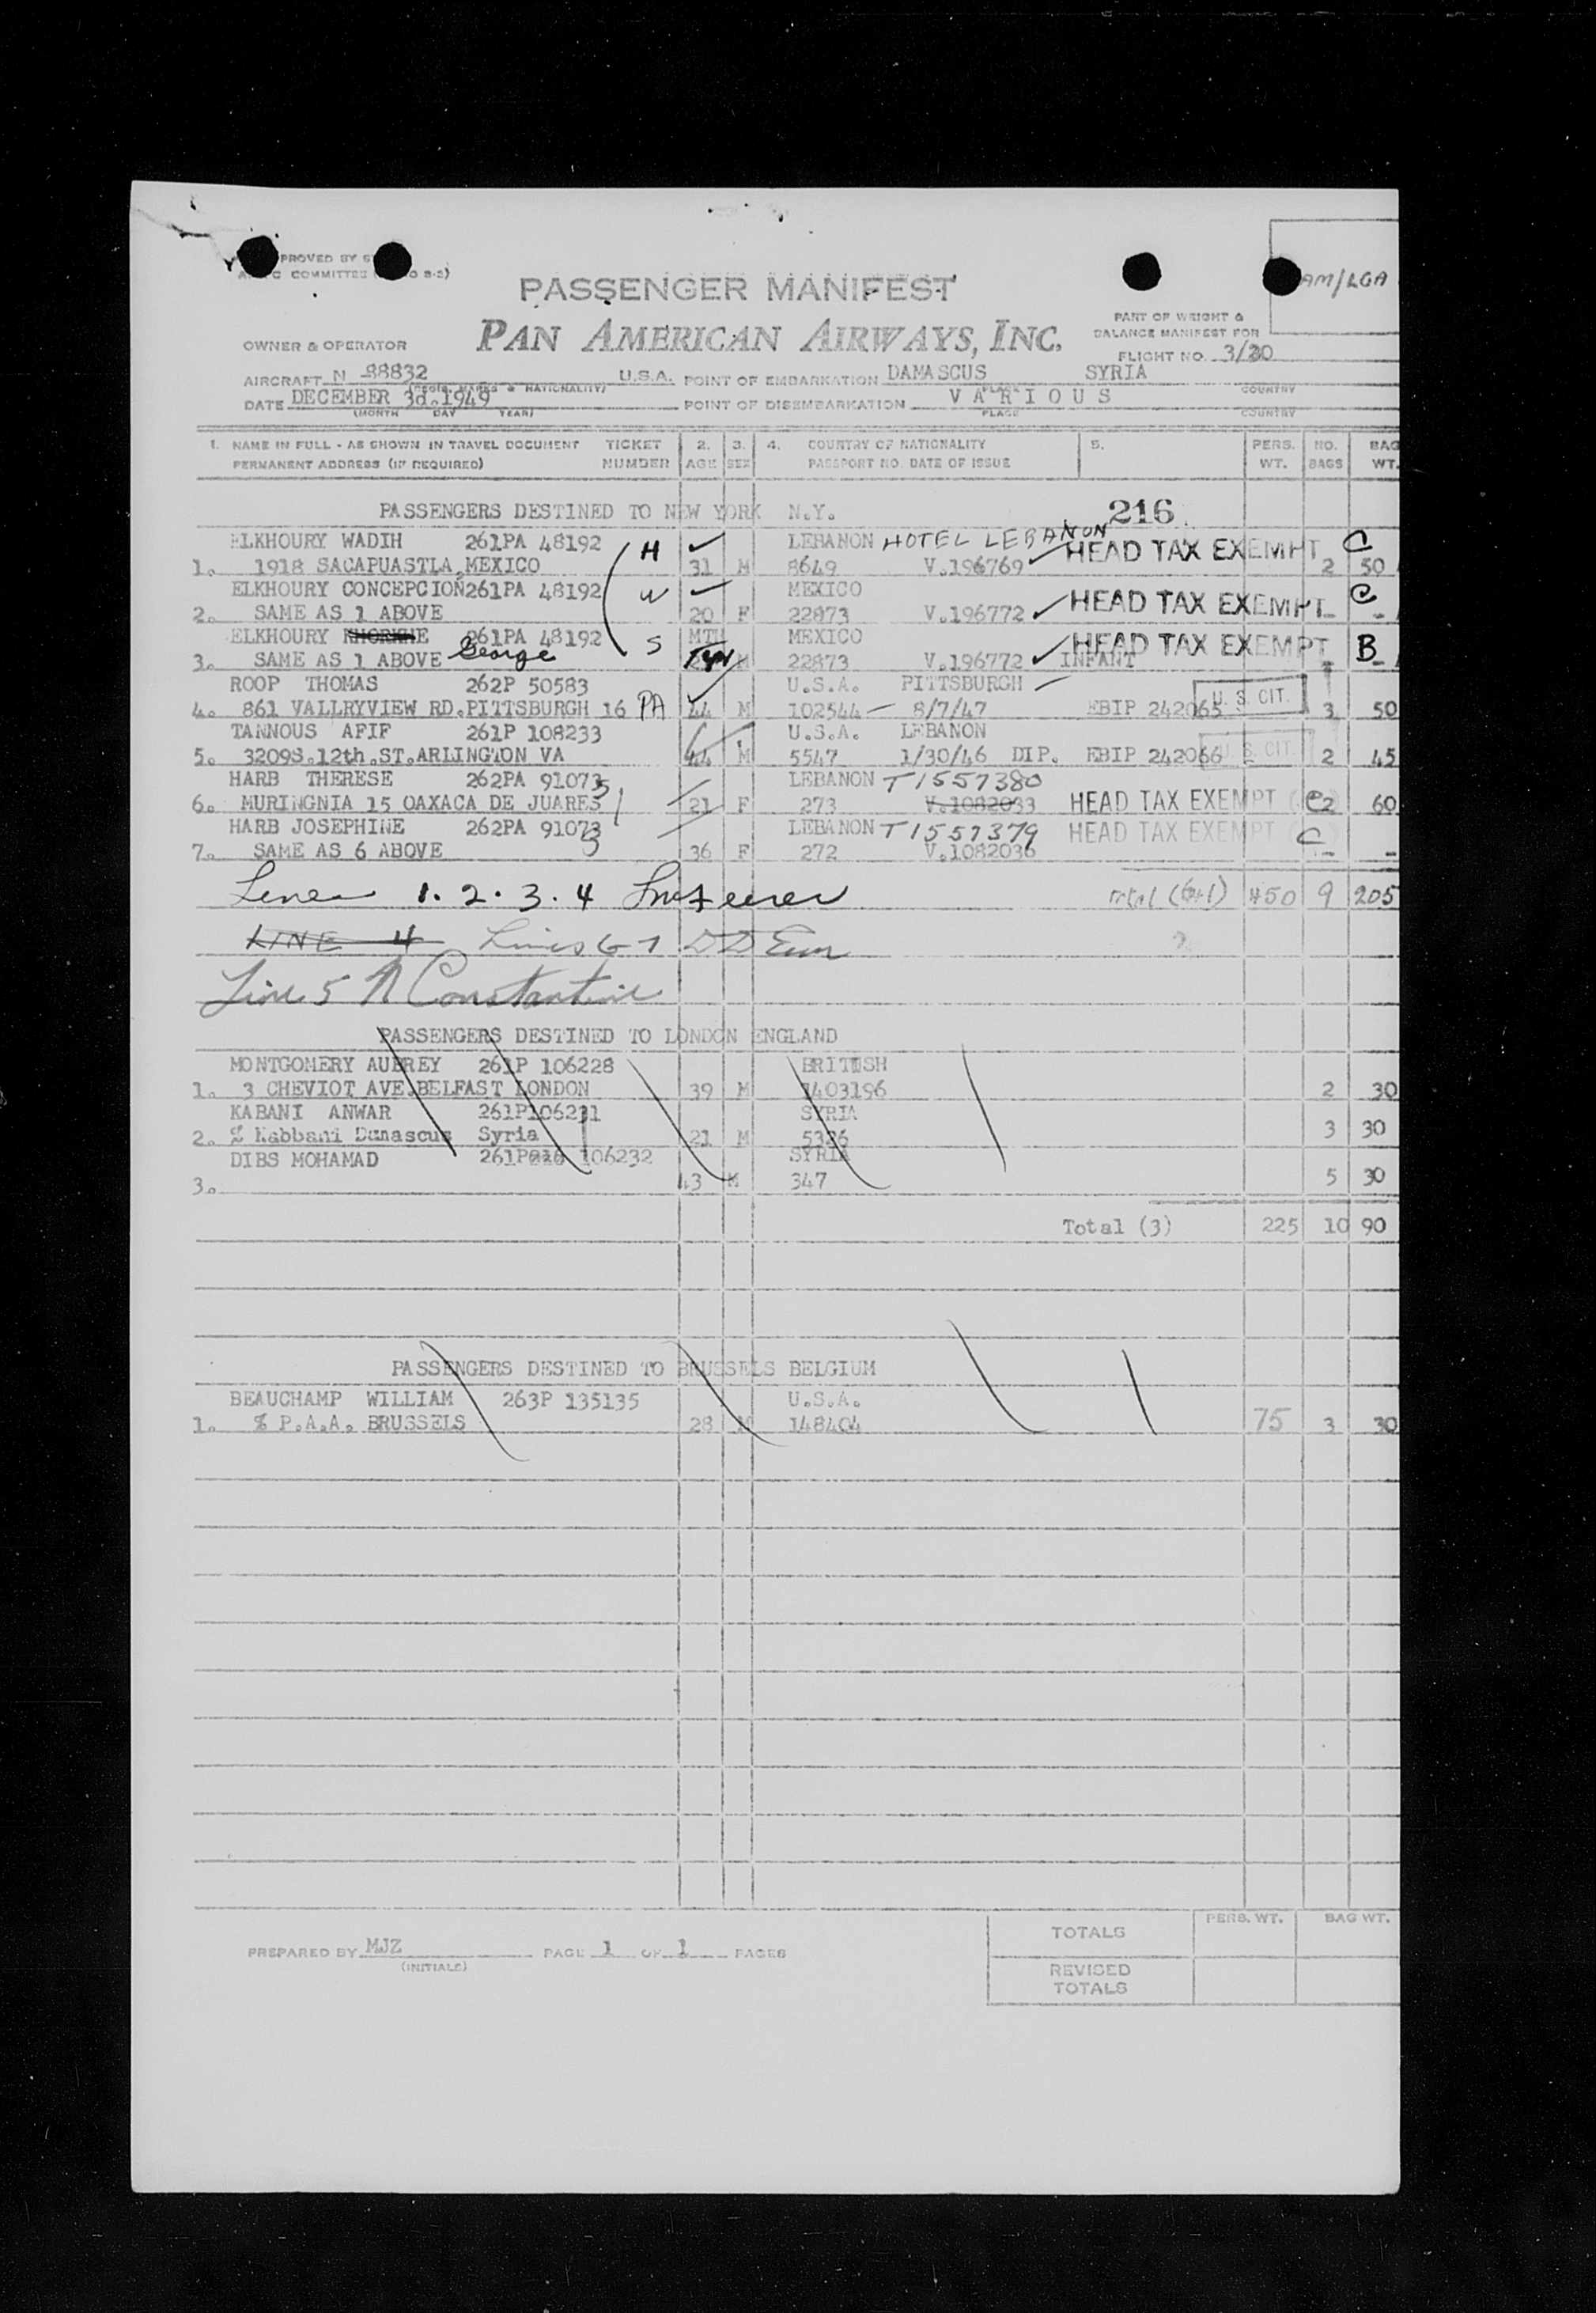 PROVED BY
COMMITTEE
PASSENGER MANIFEST
AM/LGA
PAN AMERICAN AIRWAYS, INC.
PART OF WEIGHT &
BALANCE MANIFEST FOR
OWNER & OPERATOR
FLIGHT NO. 3/30
AIRCRAFT N 88832 U.S.A. POINT OF EMBARKATION DAMASCUS SYRIA
(REGIS. MARKS & NATIONALITY) PLACE COUNTRY
DATE DECEMBER 3d.1949 POINT OF DISEMBARKATION VARIOUS
(MONTH DAY YEAR) PLACE COUNTRY
1. NAME IN FULL - AS SHOWN IN TRAVEL DOCUMENT TICKET 2. 3. 4. COUNTRY OF NATIONALITY 5. PERS. NO. BAG
PERMANENT ADDRESS (IF REQUIRED) NUMBER AGE SEX PASSPORT NO. DATE OF ISSUE WT. BAGS WT.
PASSENGERS DESTINED TO NEW YORK N.Y. 216
ELKHOURY WADIH 261PA 48192 H LEBANON HOTEL LEBANON HEAD TAX EXEMPT C
1. 1918 SACAPUASTLA,MEXICO 31 M 8649 V.196769 2 50
ELKHOURY CONCEPCION261PA 48192 W MEXICO HEAD TAX EXEMPT C
2. SAME AS 1 ABOVE 20 F 22873 V.196772 - -
ELKHOURY 261PA 48192 S MTH MEXICO HEAD TAX EXEMPT B
3. SAME AS 1 ABOVE George M 22873 V.196772 INFANT - -
ROOP THOMAS 262P 50583 U.S.A. PITTSBURGH U.S. CIT.
4. 861 VALLRYVIEW RD.PITTSBURGH 16 PA 44 M 102544 8/7/47 EBIP 242065 3 50
TANNOUS AFIF 261P 108233 U.S.A. LEBANON U.S. CIT.
5. 3209S.12th.ST.ARLINGTON VA 44 M 5547 1/30/46 DIP. EBIP 242066 2 45
HARB THERESE 262PA 91073 LEBANON T1557380
6. MURINGNIA 15 OAXACA DE JUARES 21 F 273 V.1082033 HEAD TAX EXEMPT C 2 60
HARB JOSEPHINE 262PA 91073 LEBANON T1557379 HEAD TAX EXEMPT C
7. SAME AS 6 ABOVE 36 F 272 V.1082036 - -
Lines 1. 2. 3. 4 Total (6+1) 450 9 205
LINE 4 Lines 6-7
Line 5 N Constantine
PASSENGERS DESTINED TO LONDON ENGLAND
MONTGOMERY AUBREY 261P 106228 BRITISH
1. 3 CHEVIOT AVE.BELFAST LONDON 39 M 1403196 2 30
KABANI ANWAR 261P106231 SYRIA
2. % Kabbani Damascus Syria 21 M 5326 3 30
DIBS MOHAMAD 261P 106232 SYRIA
3. 43 M 347 5 30
Total (3) 225 10 90
PASSENGERS DESTINED TO BRUSSELS BELGIUM
BEAUCHAMP WILLIAM 263P 135135 U.S.A.
1. % P.A.A. BRUSSELS 28 M 148404 75 3 30
PERS. WT. BAG WT.
TOTALS
PREPARED BY MJZ PAGE 1 OF 1 PAGES
(INITIALS)
REVISED
TOTALS